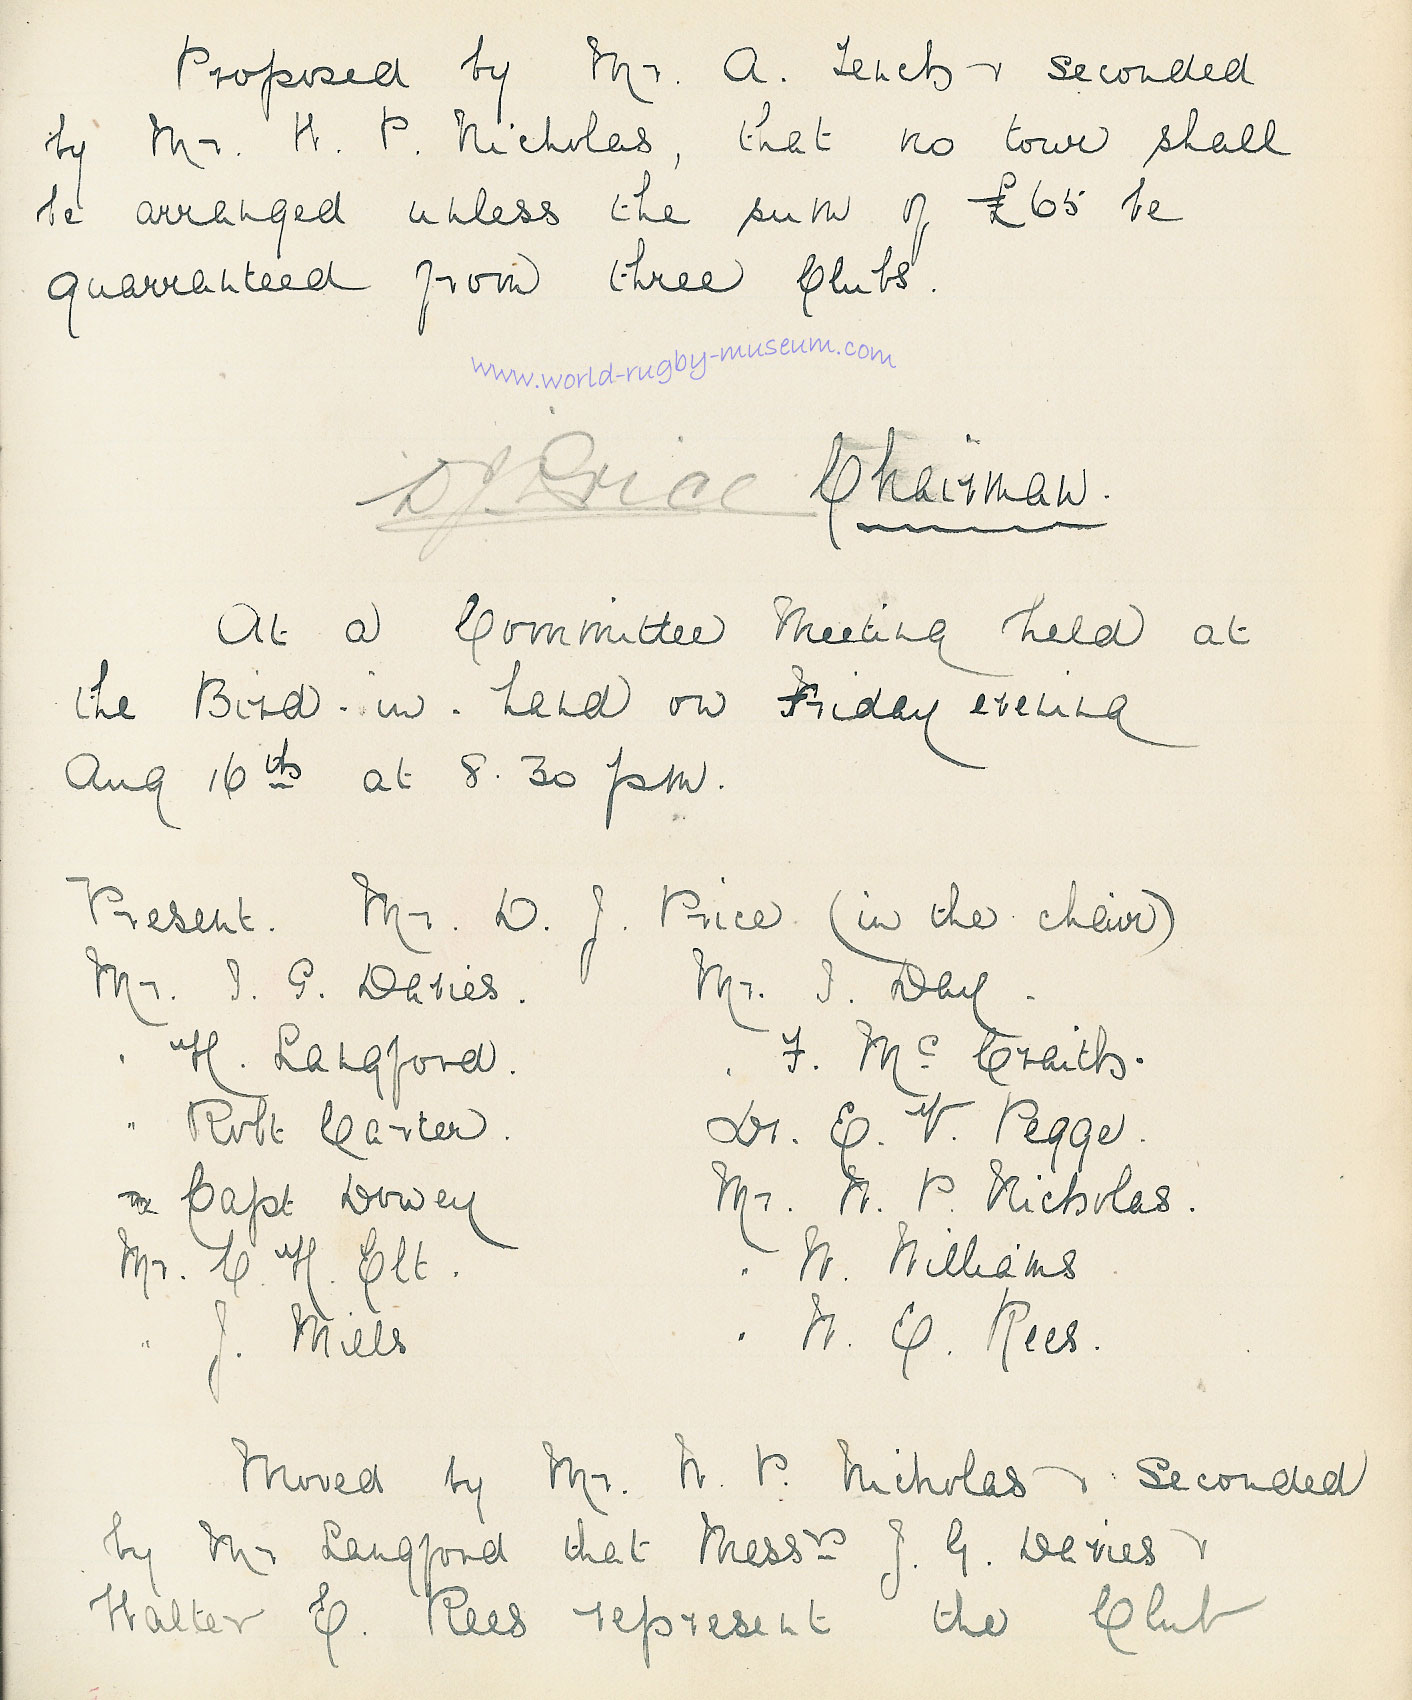 Proposed by Mr. A. Tench & seconded
by Mr. W. P. Nicholas, that no tour shall
be arranged unless the sum of £65 be
quarranteed from three Clubs.
www.world-rugby-museum.com
D J Price Chairman.
At a Committee Meeting held at
the Bird-in-hand on Friday evening
Aug 16th at 8.30 pm.
Present. Mr. D. J. Price (in the chair)
Mr. J. G. Davies. Mr. J. Day.
" H. Langford. " F. Mc Craith.
" Robt Carter. Dr. E. V. Pegge.
Capt Dowey Mr. W. P. Nicholas.
Mr. C. H. Elt. " W. Williams
" J. Mills " W. E. Rees.
Moved by Mr. W. P. Nicholas & seconded
by Mr Langford that Messrs J. G. Davies &
Walter E. Rees represent the Club